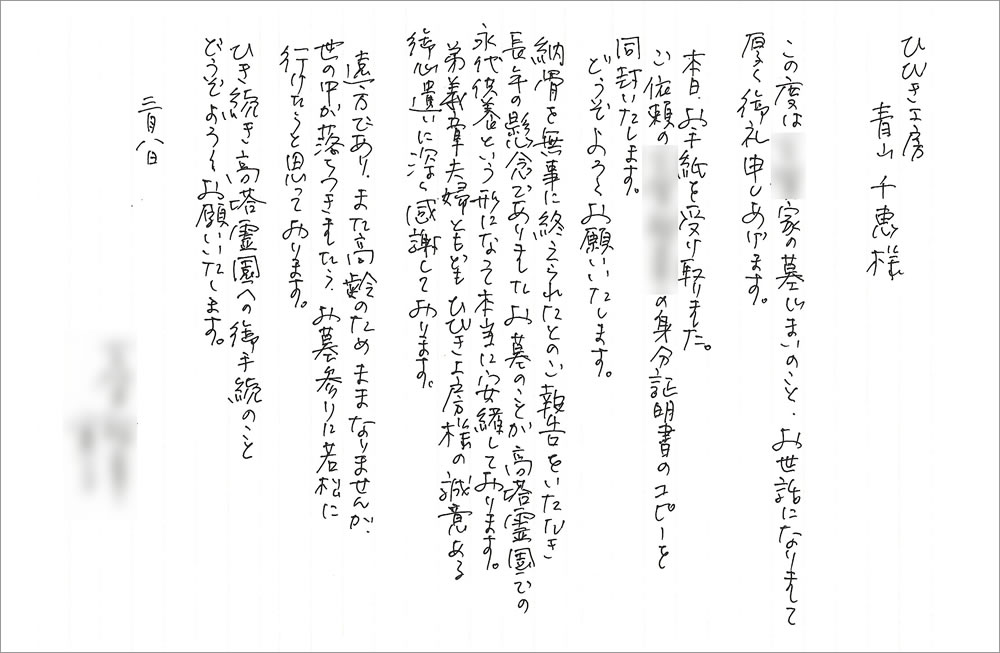 ひびき工房
青山 千恵様
この度は 家の墓じまいのこと、お世話になりまして
厚く御礼申しあげます。
本日、お手紙を受け取りました。
ご依頼の の身分証明書のコピーを
同封いたします。
どうぞよろしくお願いいたします。
納骨を無事に終えられたとのご報告をいただき
長年の懸念でありましたお墓のことが高塔霊園での
永代供養という形になって本当に安緒しております。
弟義章夫婦ともども ひびき工房様の誠意ある
御心遣いに深く感謝しております。
遠方であり、また高齢のためままなりませんが、
世の中が落ちつきましたら、お墓参りに若松に
行けたらと思っております。
ひき続き高塔霊園への御手続のこと
どうぞよろしくお願いいたします。
三月八日